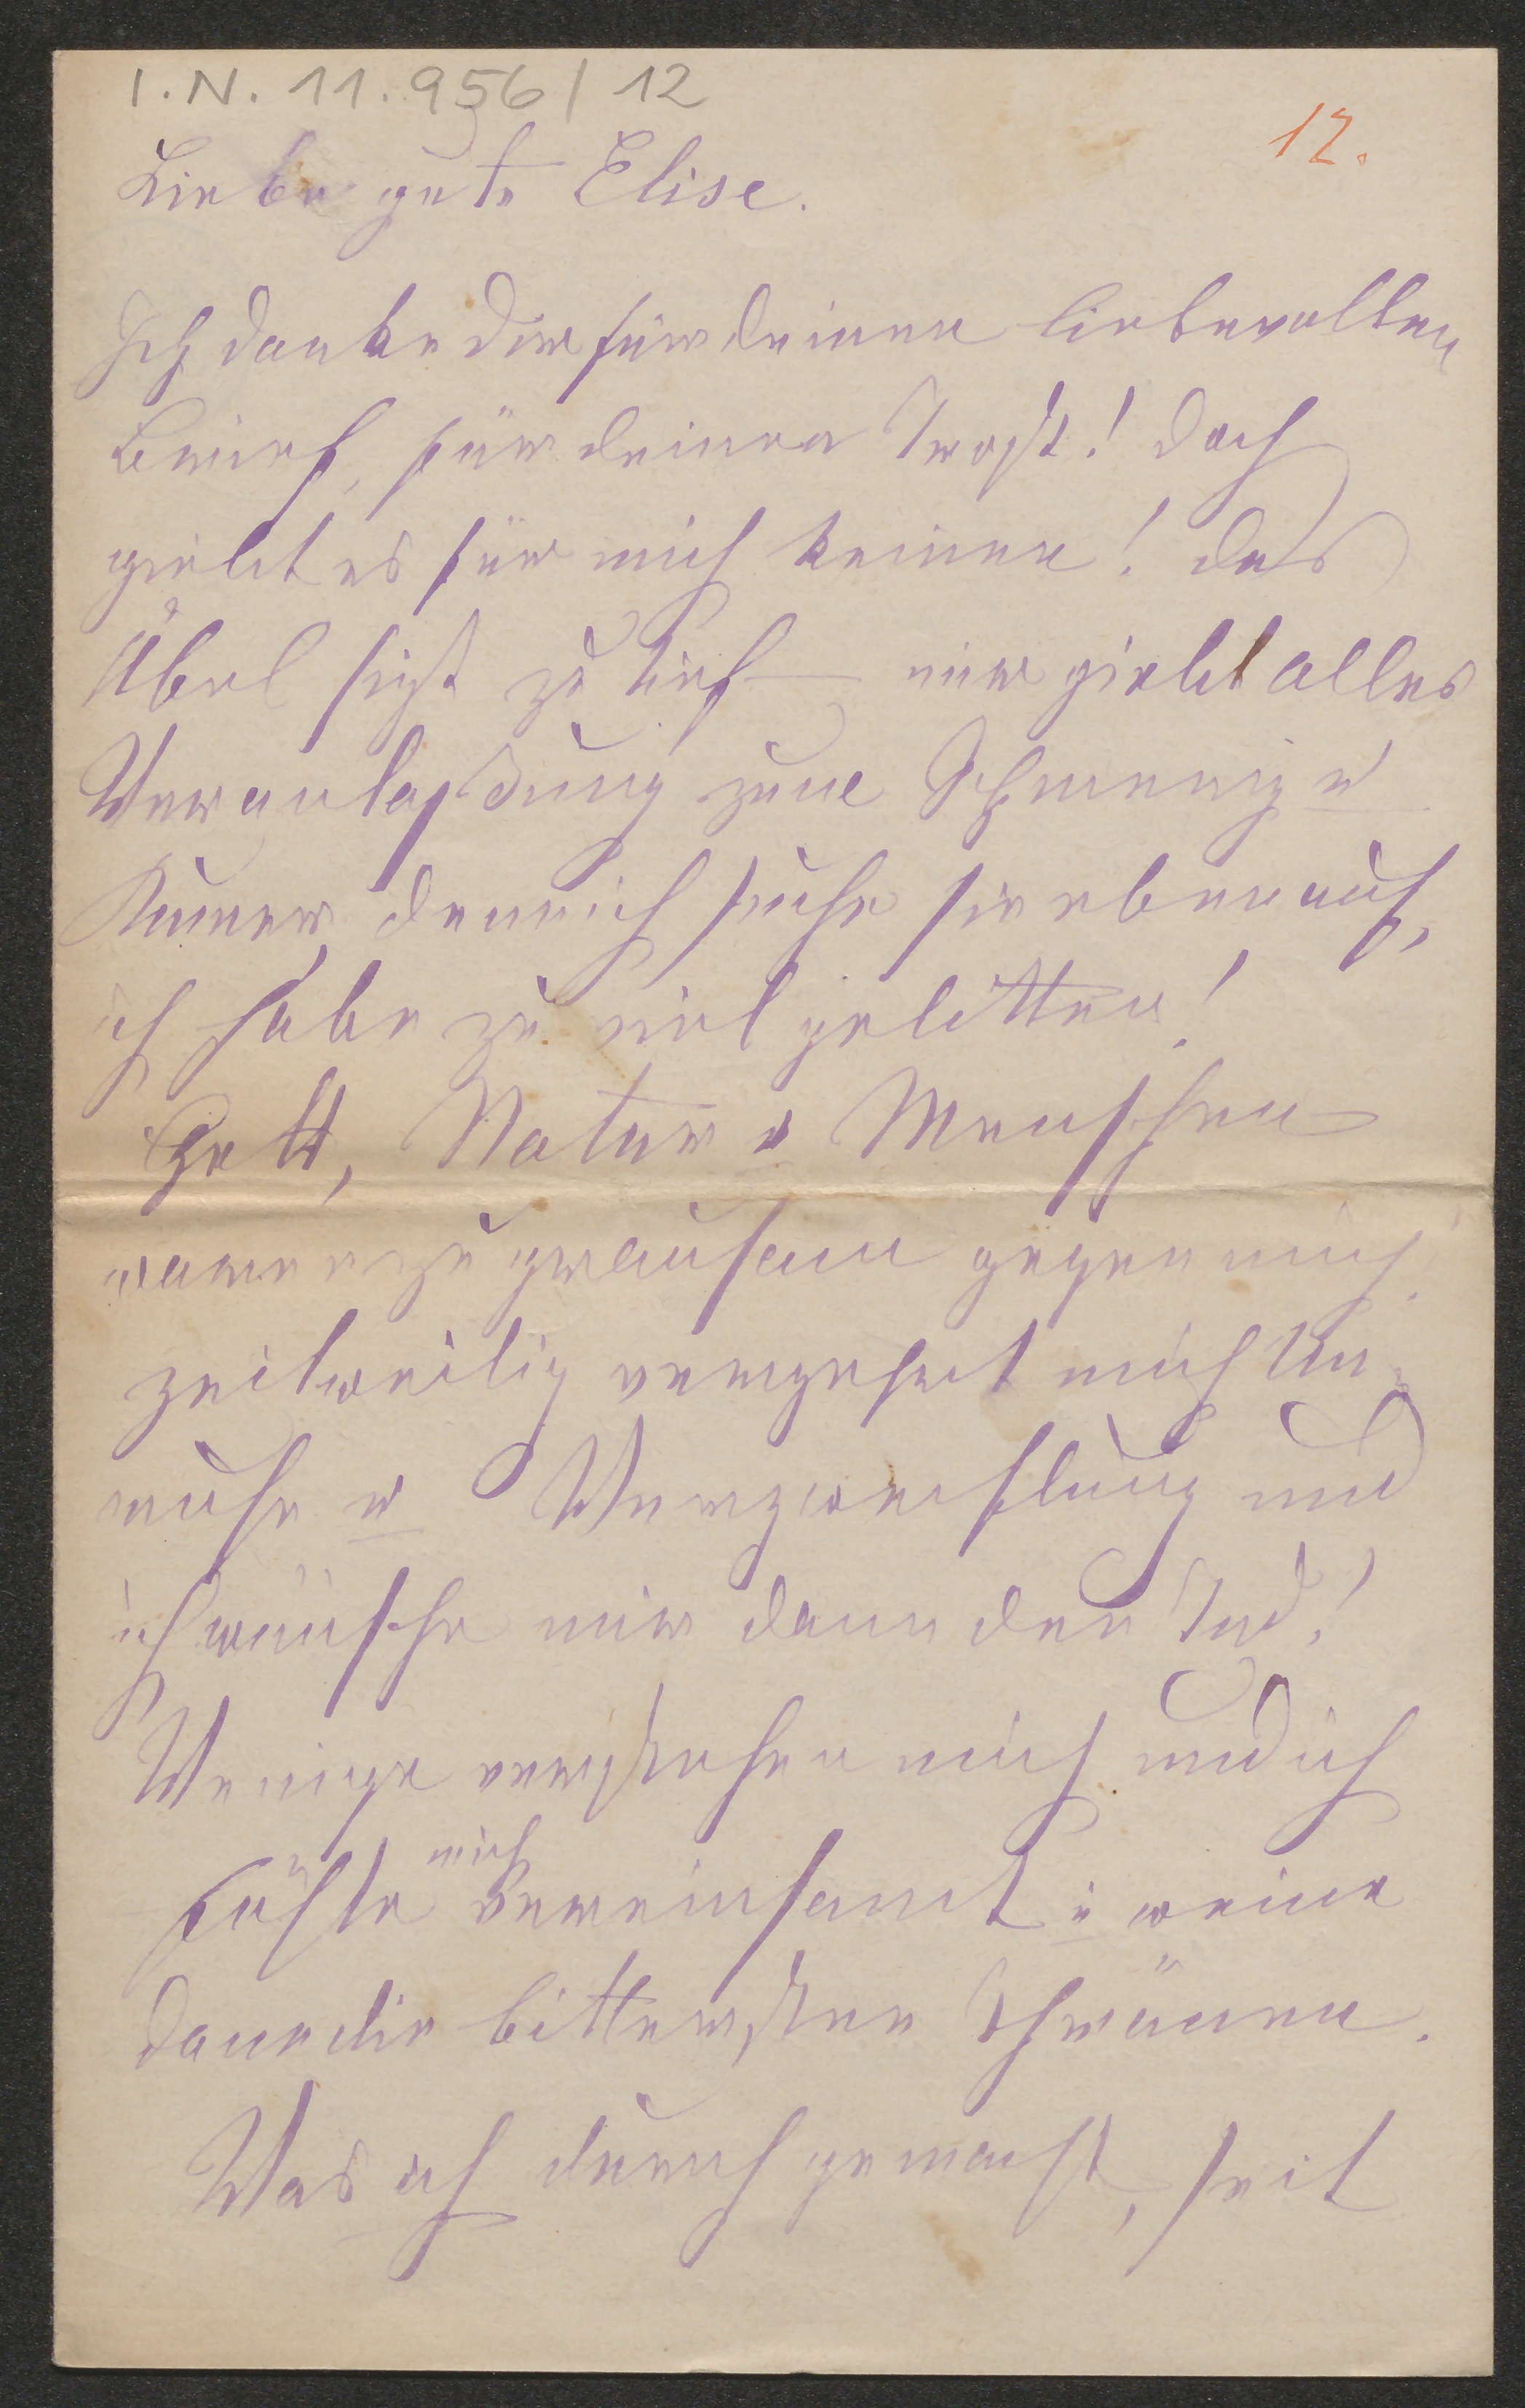 I.N. 11.956/12
12.
Liebe gute Elise.
Ich danke dir für deinen liebevollen
Brief, für deinen Trost! doch
giebt es für mich keinen! das
Übel sizt zu tief — mir giebt alles
Veranlaßung zum Schmerz u
Kumer, denn ich suche sie eben auf,
ich habe zu viel gelitten!
Gott, Natur u Menschen
waren zu grausam gegen mich.
zeitweilig verzehrt mich Un-
ruhe u Verzweiflung und
ich wünsche mir dann den Tod!
Wenige verstehen mich und ich
mich
fühle vereinsamt u weine
dann die bittersten Thränen.
Was ich durch gemacht, seit